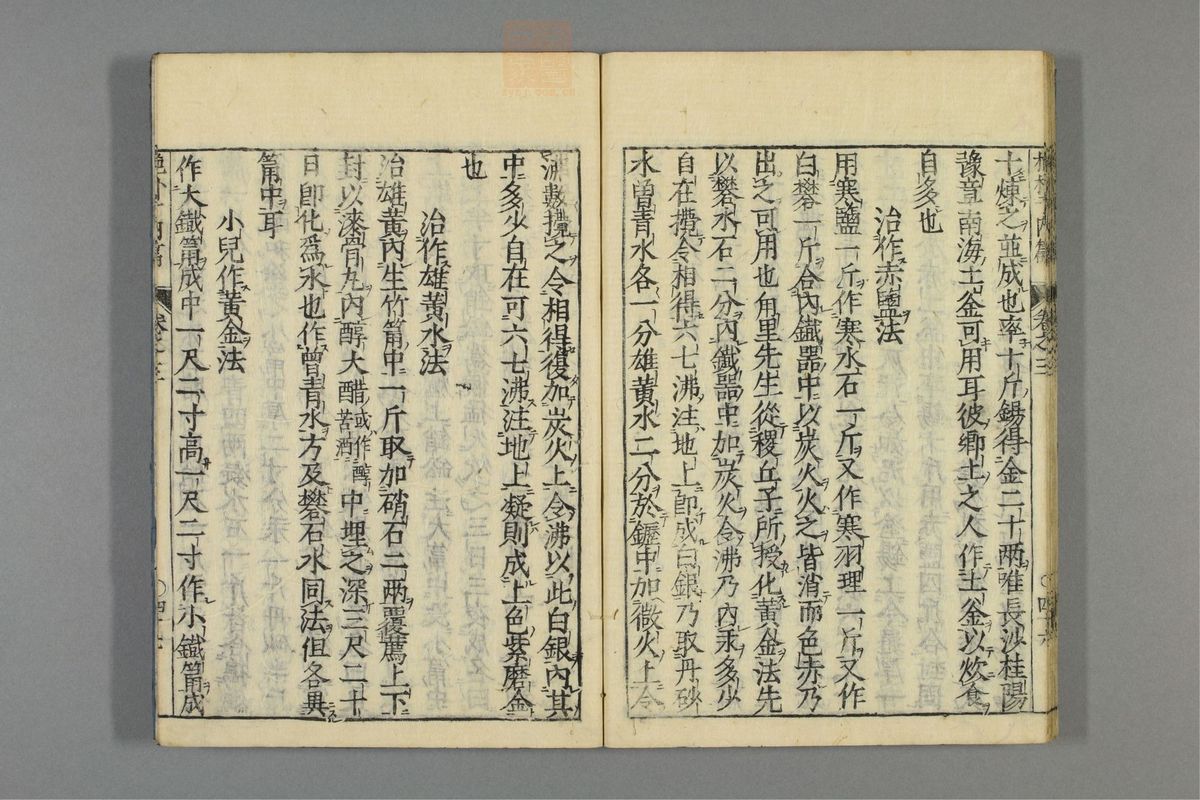 十煉之並成也率十斤錫得金二十兩唯長沙桂陽
豫章南海土釜可用耳彼鄉土之人作土釜以炊食
自多也
治作赤鹽法
用寒鹽一斤作寒水石一斤又作寒羽理一斤又作
白礬一斤合內鐵器中以炭火火之皆消而色赤乃
出之可用也甪里先生從稷丘子所授化黃金法先
以礬水石二分內鐵器中加炭火令沸乃內汞多少
自在攪令相得六七沸注地上即成白銀乃取丹砂
水曾青水各一分雄黃水二分於鑩中加微火上令
沸數攪之令相得復加炭火上令沸以此白銀內其
中多少自在可六七沸注地上凝則成上色紫磨金
也
治作雄黃水法
治雄黃內生竹筩中一斤取加硝石二兩覆薦上下
封以漆骨丸內醇大醋或作醇苦酒中埋之深三尺二十
日即化為水也作曾青水方及礬石水同法但各異
筩中耳
小兒作黃金法
作大鐵筩成中一尺二寸高一尺二寸作小鐵筩成
卷之三